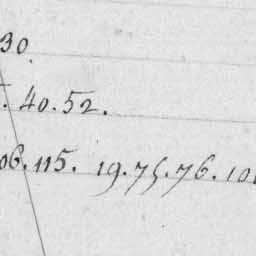 30.
40.52.
06.115. 19.75.76.10